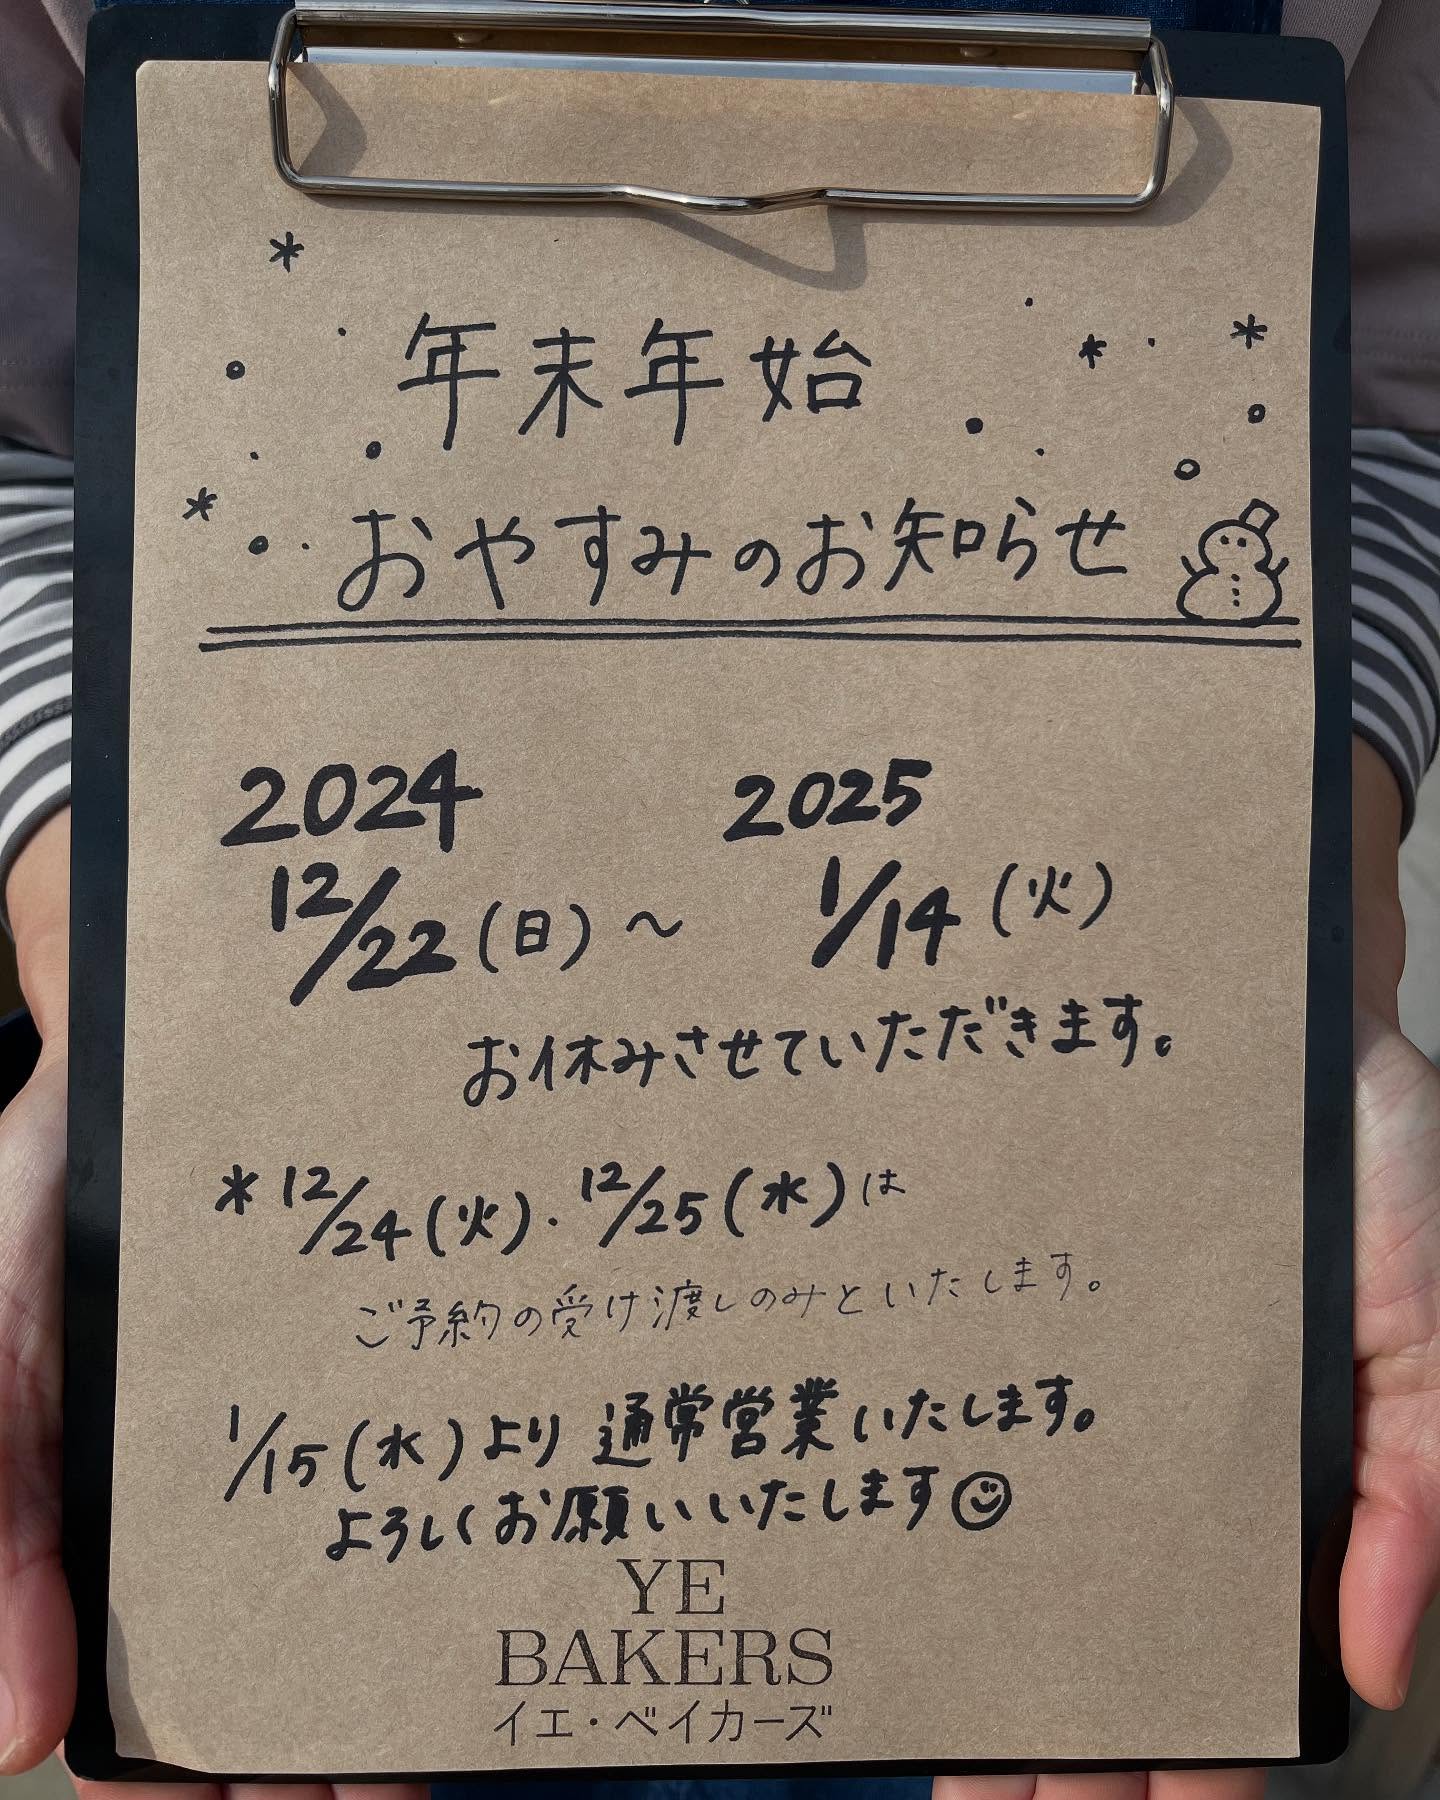 年末年始
おやすみのお知らせ
2024 2025
12/22(日)～1/14(火)
お休みさせていただきます。
*12/24(火)・12/25(水)は
ご予約の受け渡しのみといたします。
1/15(水)より通常営業いたします。
よろしくお願いいたします
YE
BAKERS
イエ・ベイカーズ